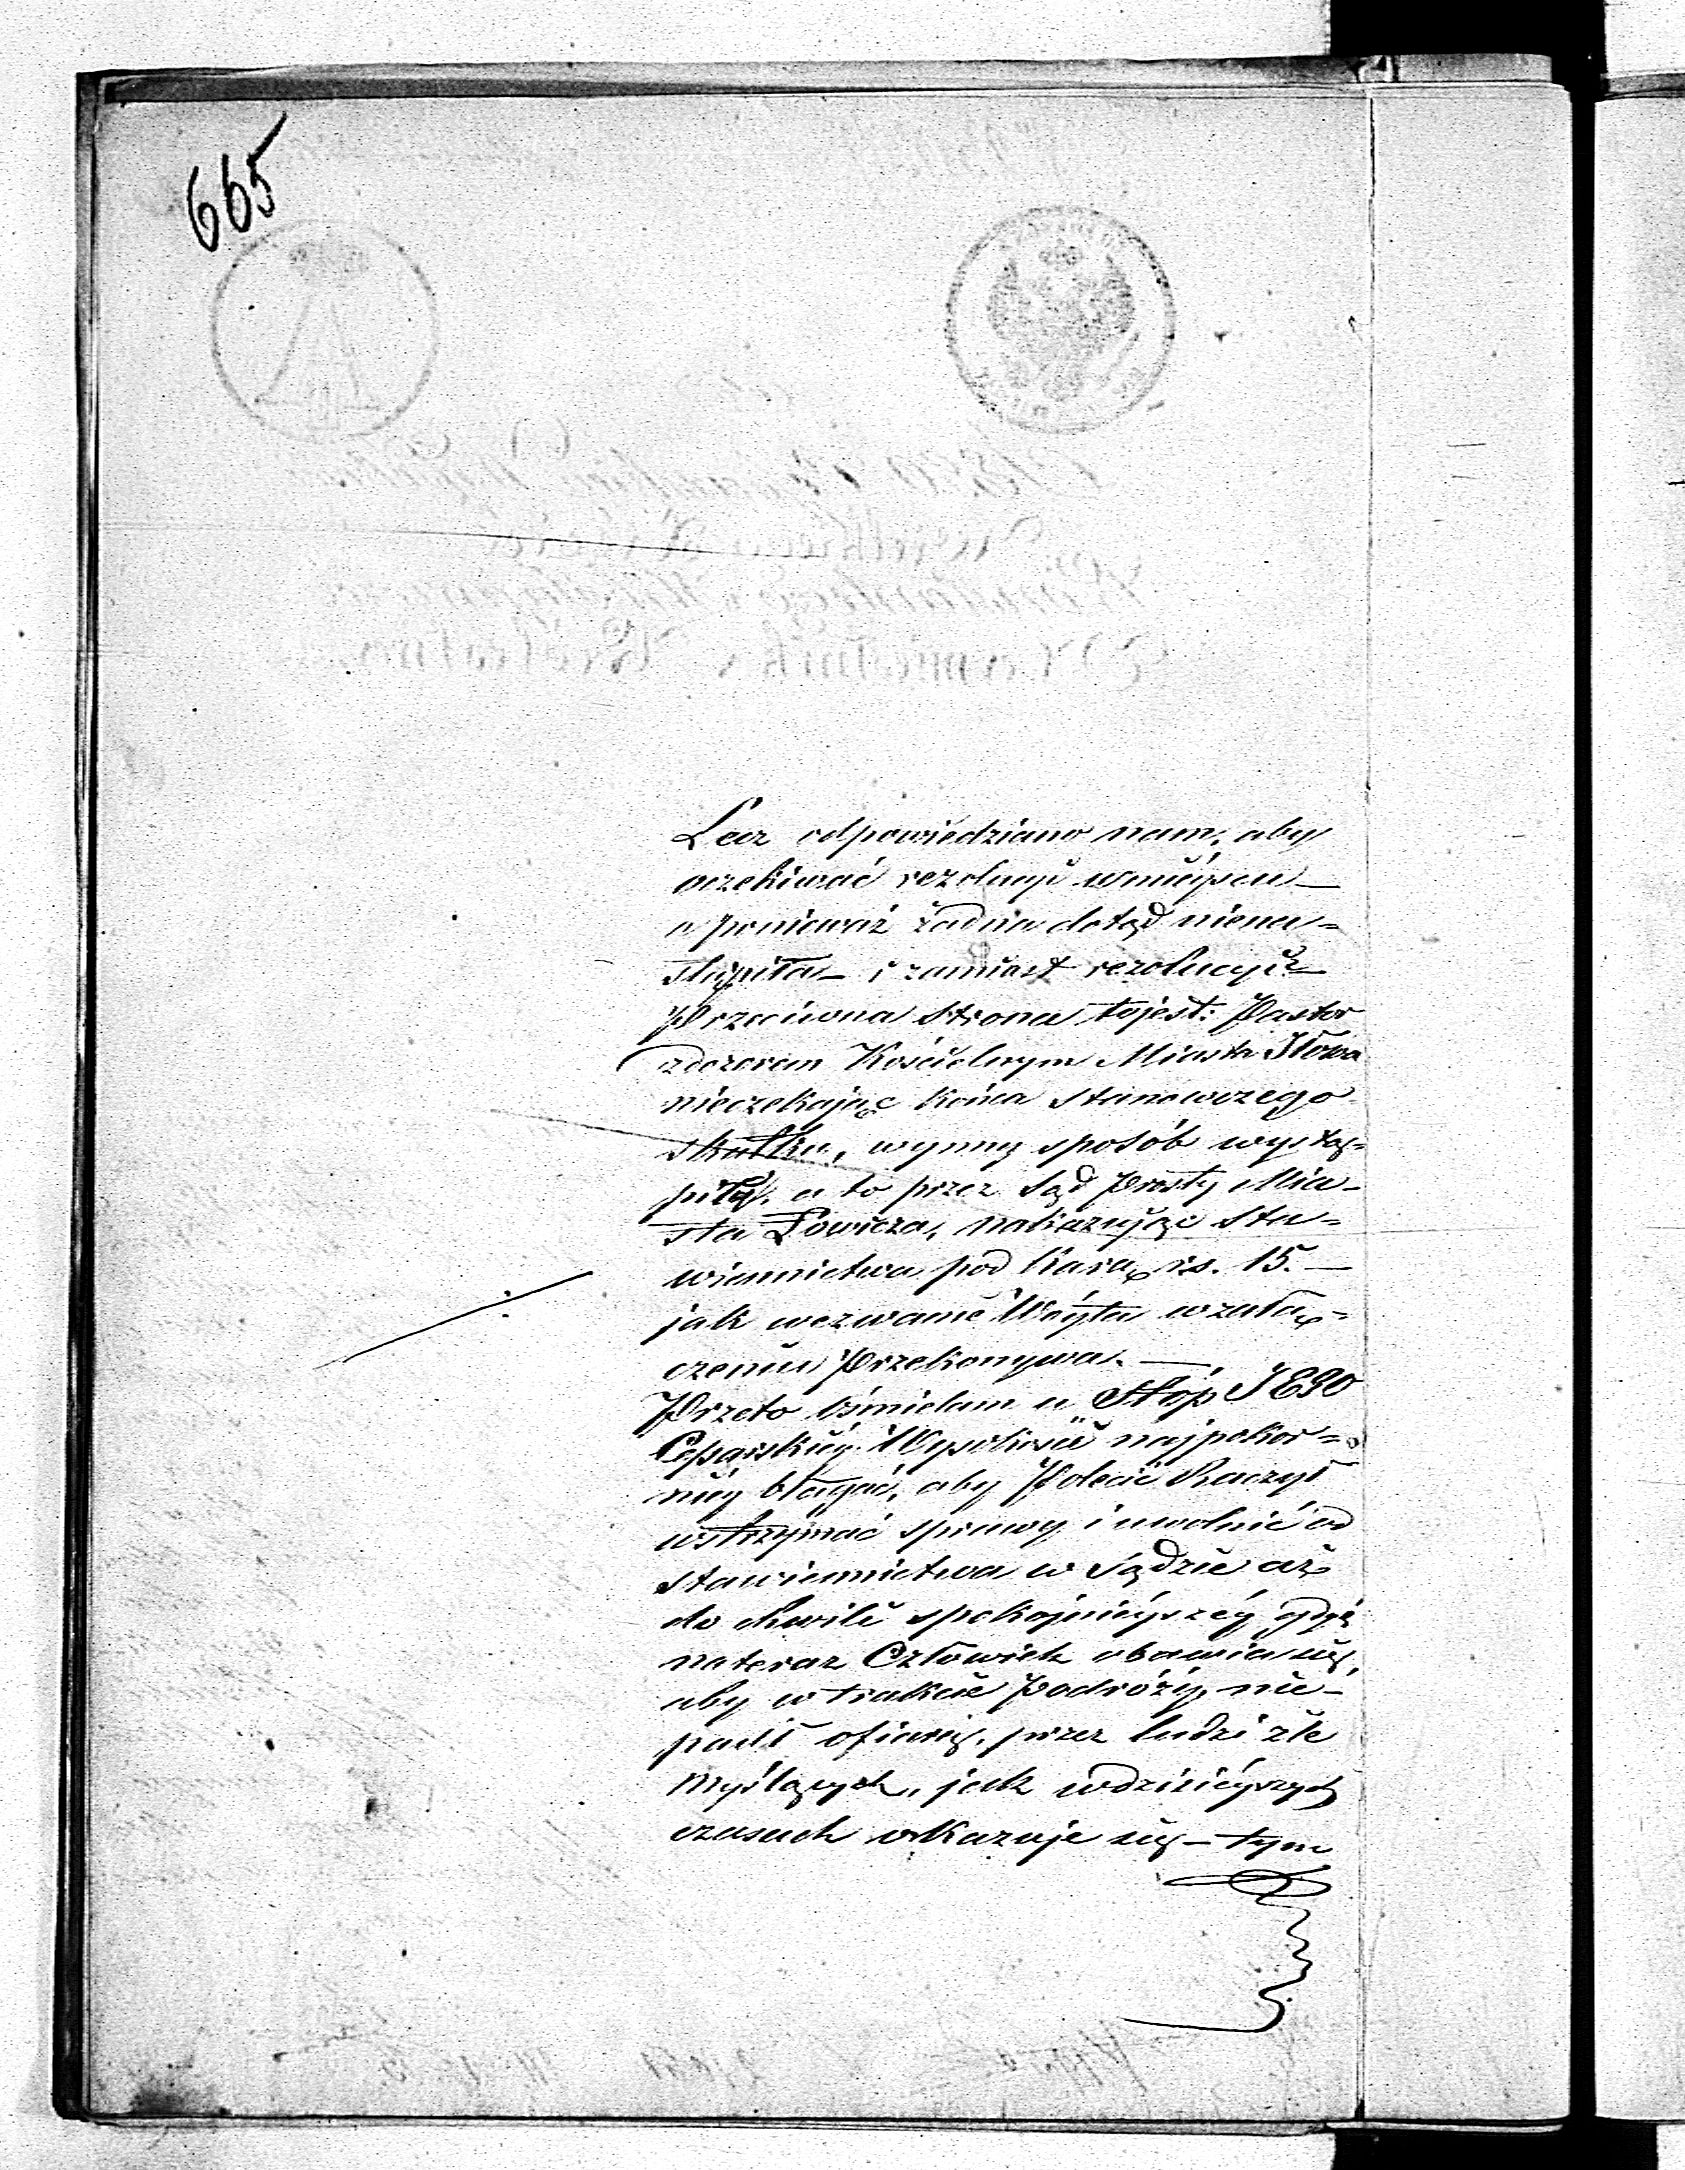 665
Lecz odpowiedziano nam, aby
oczekiwać rezolucyi wmiéyscu —
a ponieważ żadna dotąd niena=
stąpiła — i zamiast rezolucyi —
Przeciwna Strona tojest: Pastor
zdozorem Kościelnym Miasta Iłowa
nieczekając końca stanowczego
skutku, winny sposób wystą=
piły, a to przez Sąd Prosty Mia-
sta Łowicza, nakazując sta=
wiennictwa pod karą rs. 15. —
jak wezwanie Wóyta wzałą=
czeniu Przekonywa. —
Przeto ośmielam u Stóp JEGO
Cesarskiéy Wysokości najpokor=
niéy błagać, aby Polecić Raczył
wstrzymać sprawy i uwolnić od
stawiennictwa w Sądzie aż
do chwili spokojniéyszéy gdyż
nateraz Człowiek obawia się,
aby w trakcie Podróży, nie-
padł ofiarą, przez ludzi źle
myślących, jak wdzisiéyszych
czasach okazuje się — tym